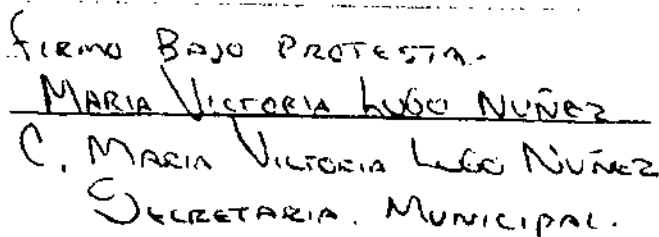 Firmo Bajo Protesta.
Maria Victoria Lugo Nuñez
C. Maria Victoria Lugo Nuñez
Secretaria. Municipal.